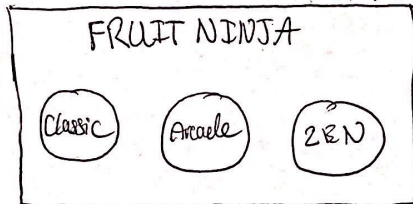 FRUIT NINJA
Classic
Arcade
ZEN